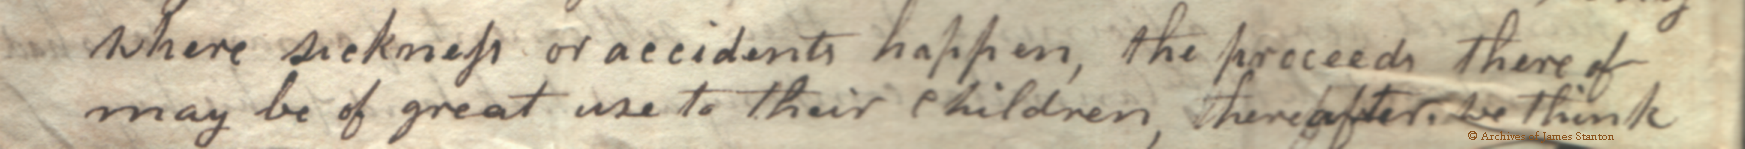 where sickness or accidents happen, the proceeds there of
may be of great use to their Children, thereafter. we think
© Archives of James Stanton